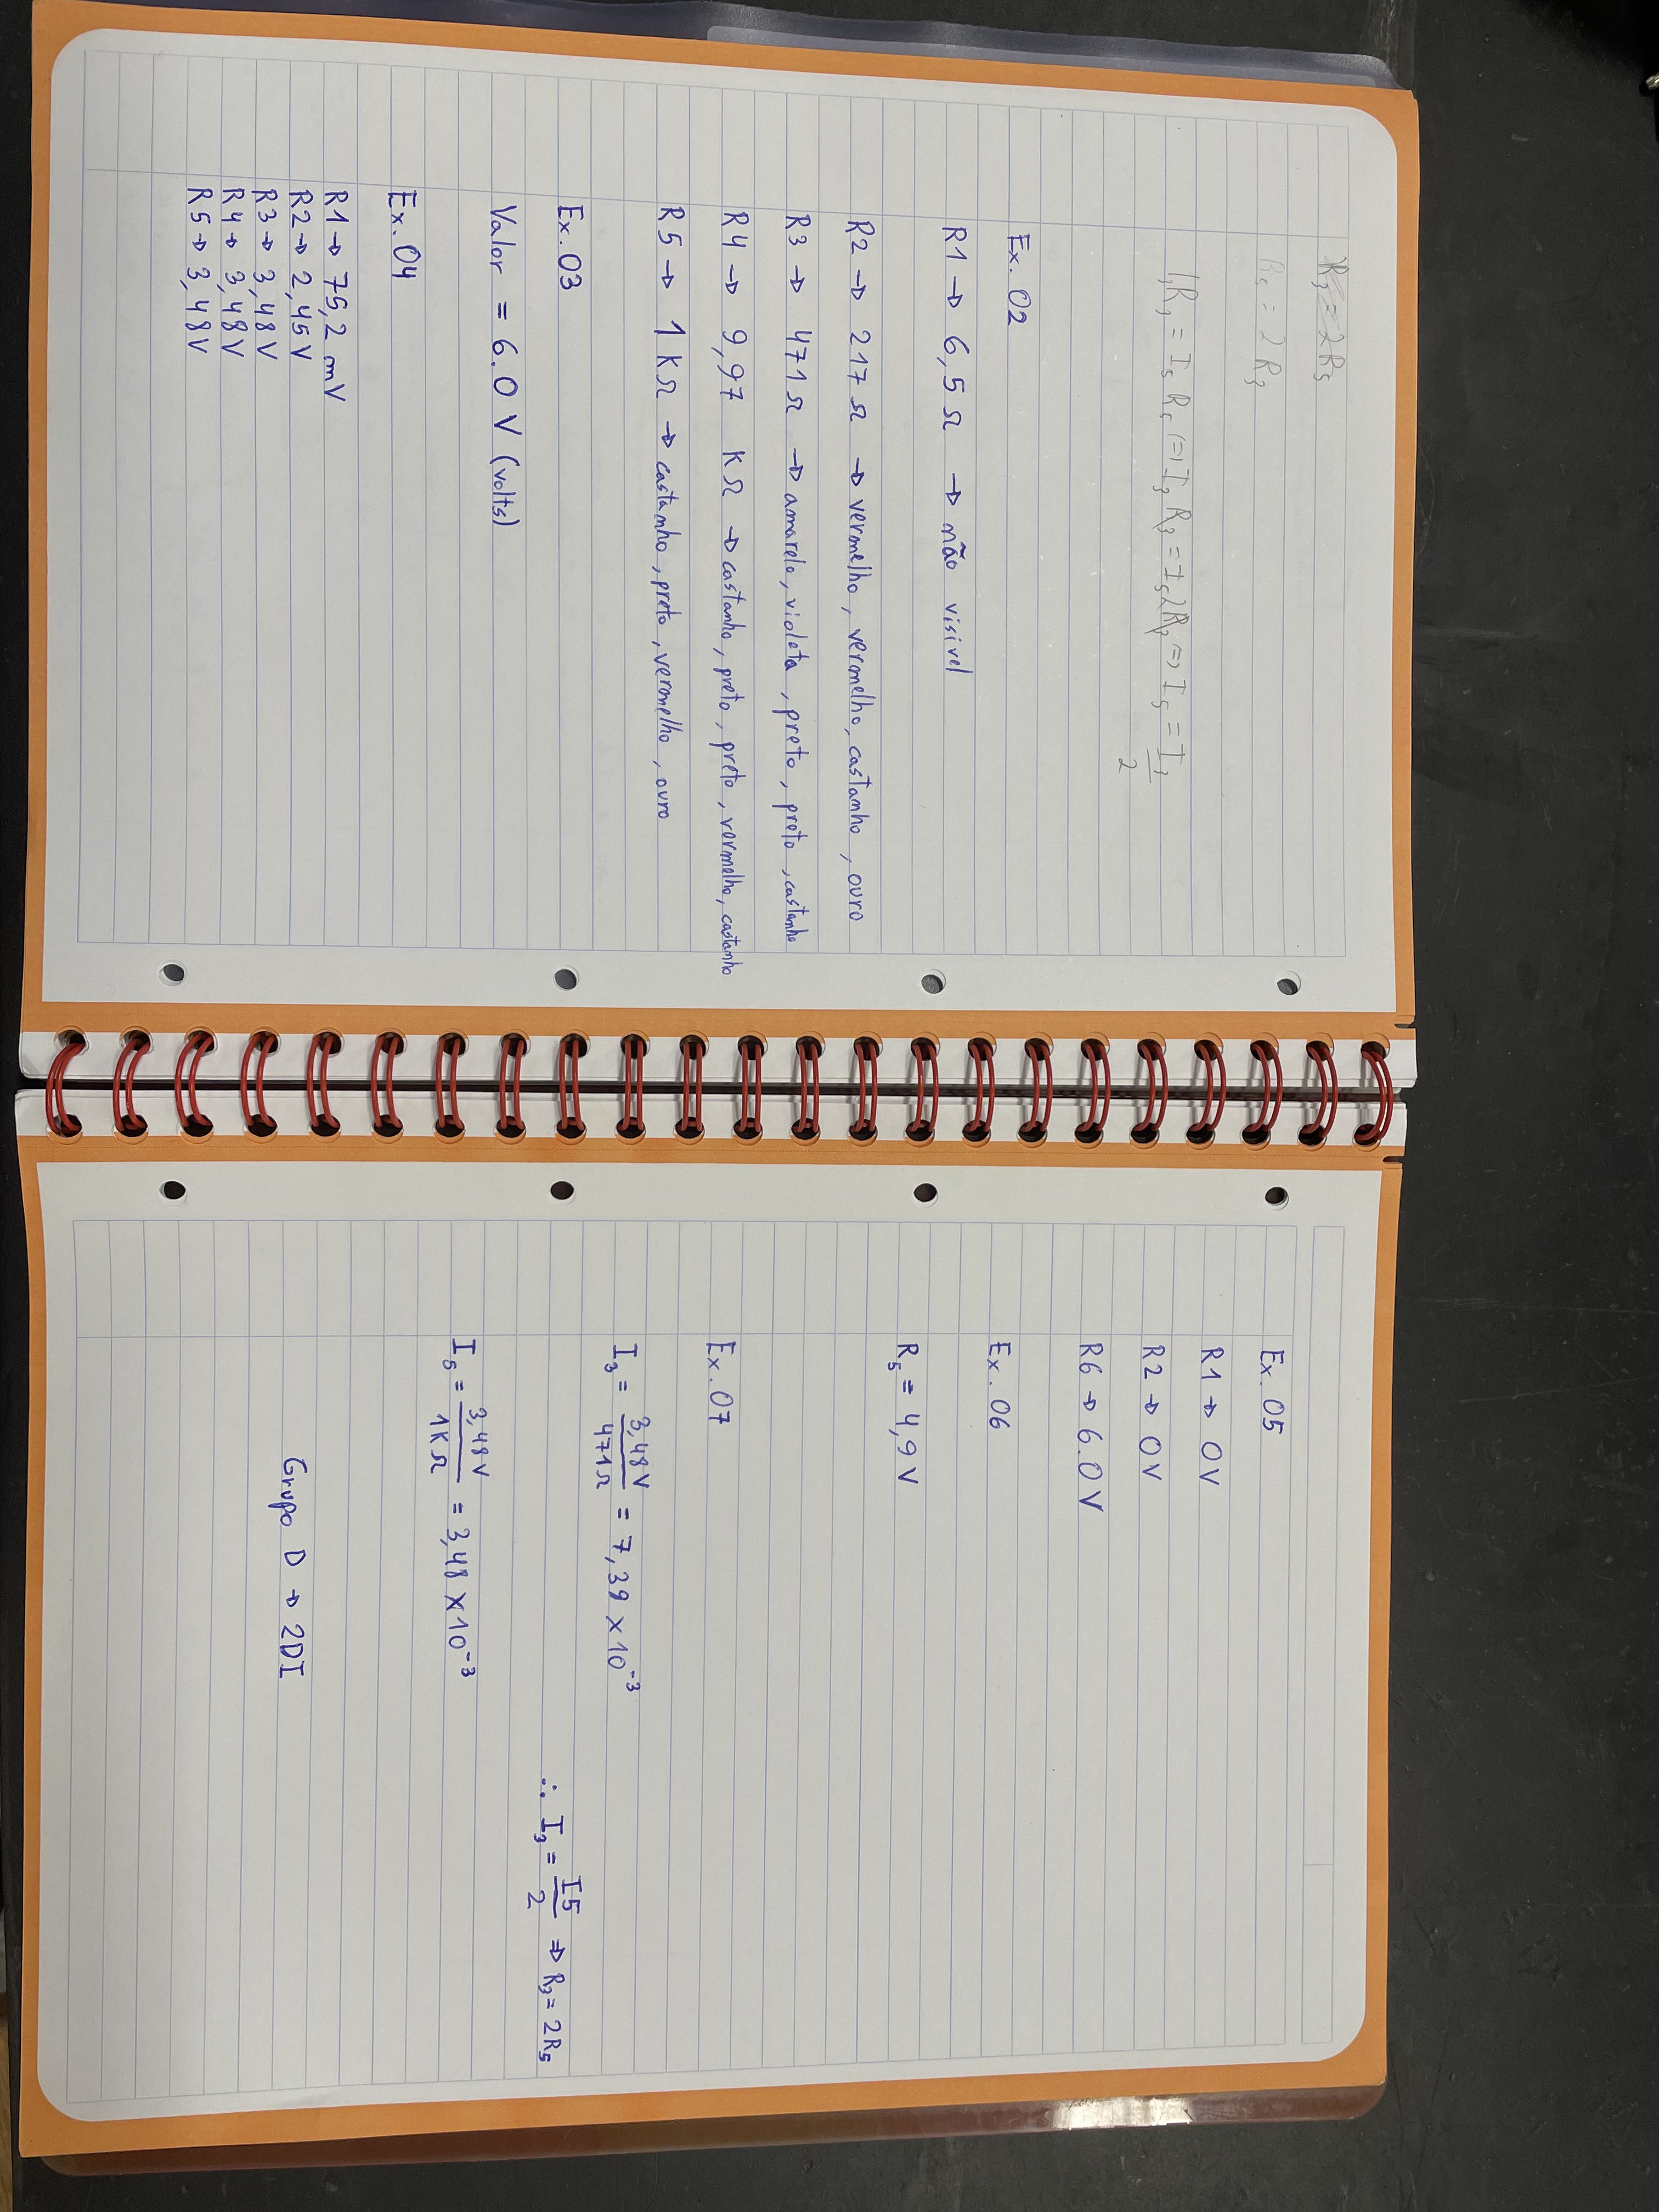 R3 = 2R5
R5 = 2R3
I3R3 = I5 R5 (=) I3 R3 = I5 2R3 => I5 = I3/2
Ex.02
R1 → 6,5 Ω → não visivel
R2 → 217 Ω → vermelho, vermelho, castanho, ouro
R3 → 471 Ω → amarelo, violeta, preto, preto, castanho
R4 → 9,97 KΩ → castanho, preto, preto, vermelho, castanho
R5 → 1 KΩ → castanho, preto, vermelho, ouro
Ex.03
Valor = 6.0 V (volts)
Ex.04
R1 → 75,2 mV
R2 → 2,45 V
R3 → 3,48 V
R4 → 3,48 V
R5 → 3,48 V
Ex.05
R1 → 0V
R2 → 0V
R6 → 6.0V
Ex.06
R5 = 4,9 V
Ex.07
I3 = 3,48V/471Ω = 7,39 × 10⁻³
∴ I3 = I5/2 ⇒ R3 = 2R5
I5 = 3,48V/1KΩ = 3,48 × 10⁻³
Grupo D → 2DI